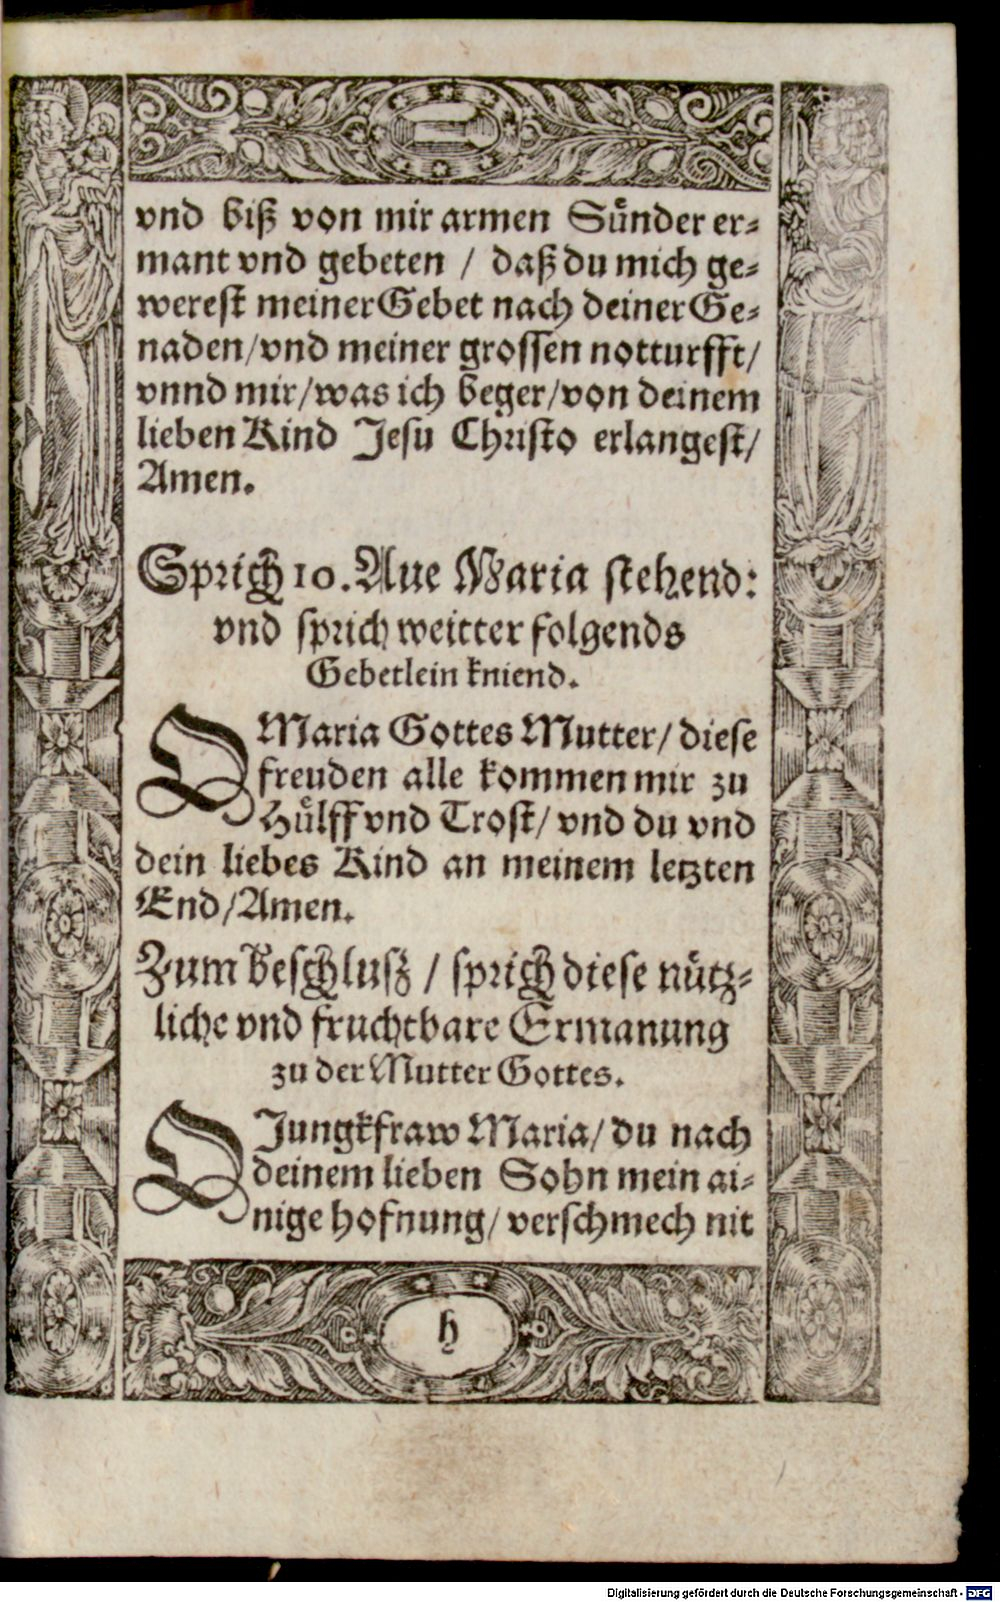 vnd biß von mir armen Suͤnder er⸗
mant vnd gebeten / daß du mich ge⸗
werest meiner Gebet nach deiner Ge⸗
naden/vnd meiner grossen notturfft/
vnnd mir/was ich beger/von deinem
lieben Kind Jesu Christo erlangest/
Amen.
Sprich 10. Aue Maria stehend:
vnd sprich weitter folgends
Gebetlein kniend.
O Maria Gottes Mutter/ diese
freuden alle kommen mir zu
Huͤlff vnd Trost/ vnd du vnd
dein liebes Kind an meinem letzten
End/Amen.
Zum Beschlusz / sprich diese nuͤtz⸗
liche vnd fruchtbare Ermanung
zu der Mutter Gottes.
O Jungkfraw Maria/ du nach
deinem lieben Sohn mein ai⸗
nige hofnung/ verschmech nit
h
Digitalisierung gefördert durch die Deutsche Forschungsgemeinschaft - DFG